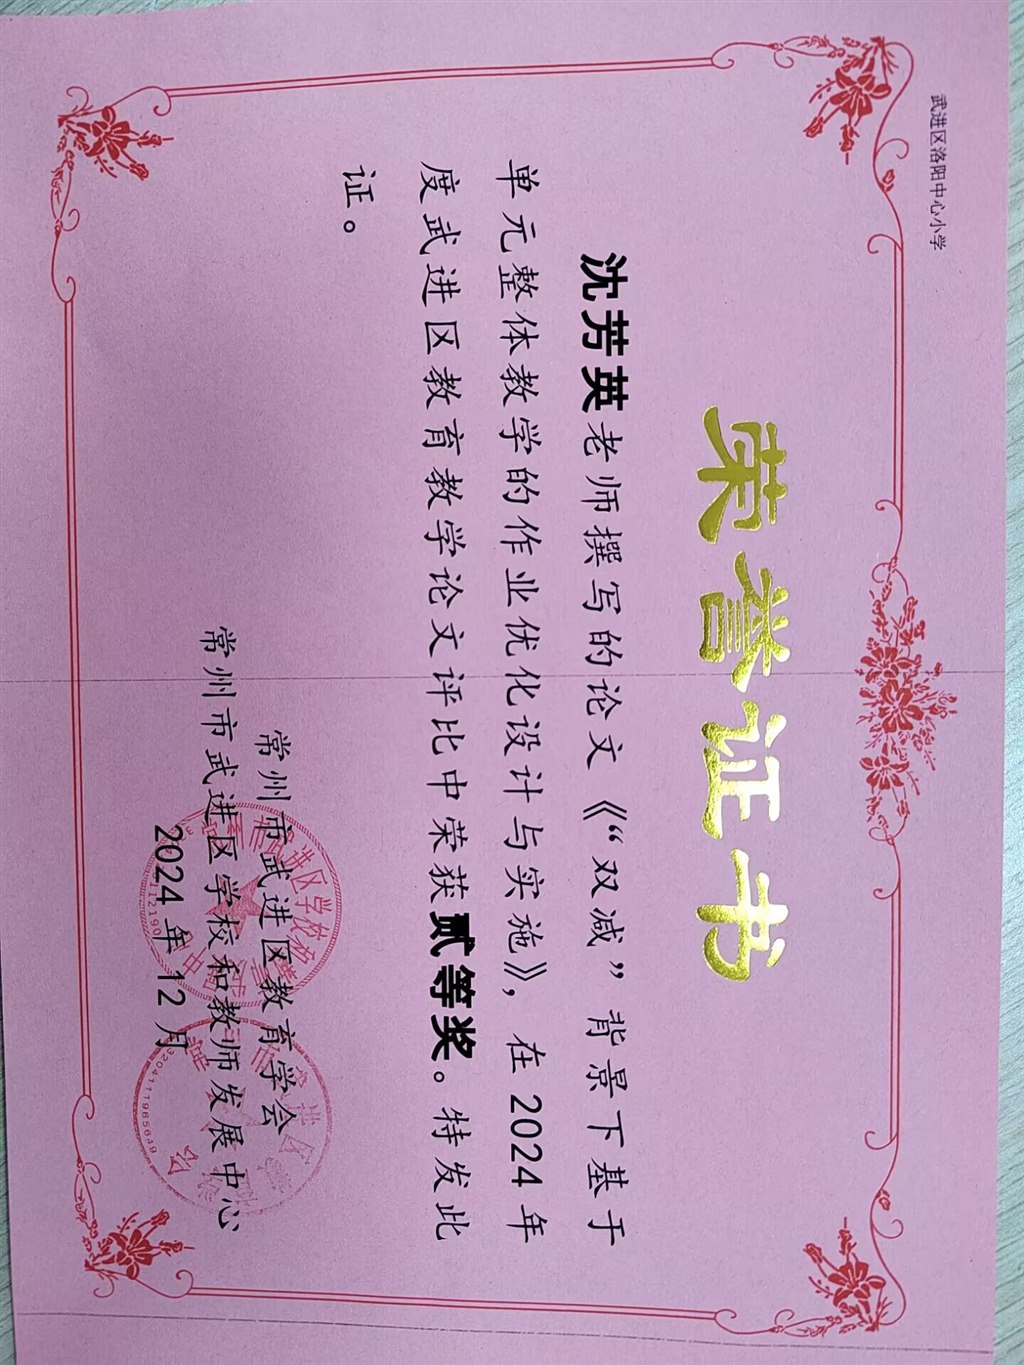 武进区洛阳中心小学
荣誉证书
沈芳英老师撰写的论文《“双减”背景下基于
单元整体教学的作业优化设计与实施》，在2024年
度武进区教育教学论文评比中荣获贰等奖。特发此
证。
常州市武进区教育学会
常州市武进区学校和教师发展中心
2024年12月